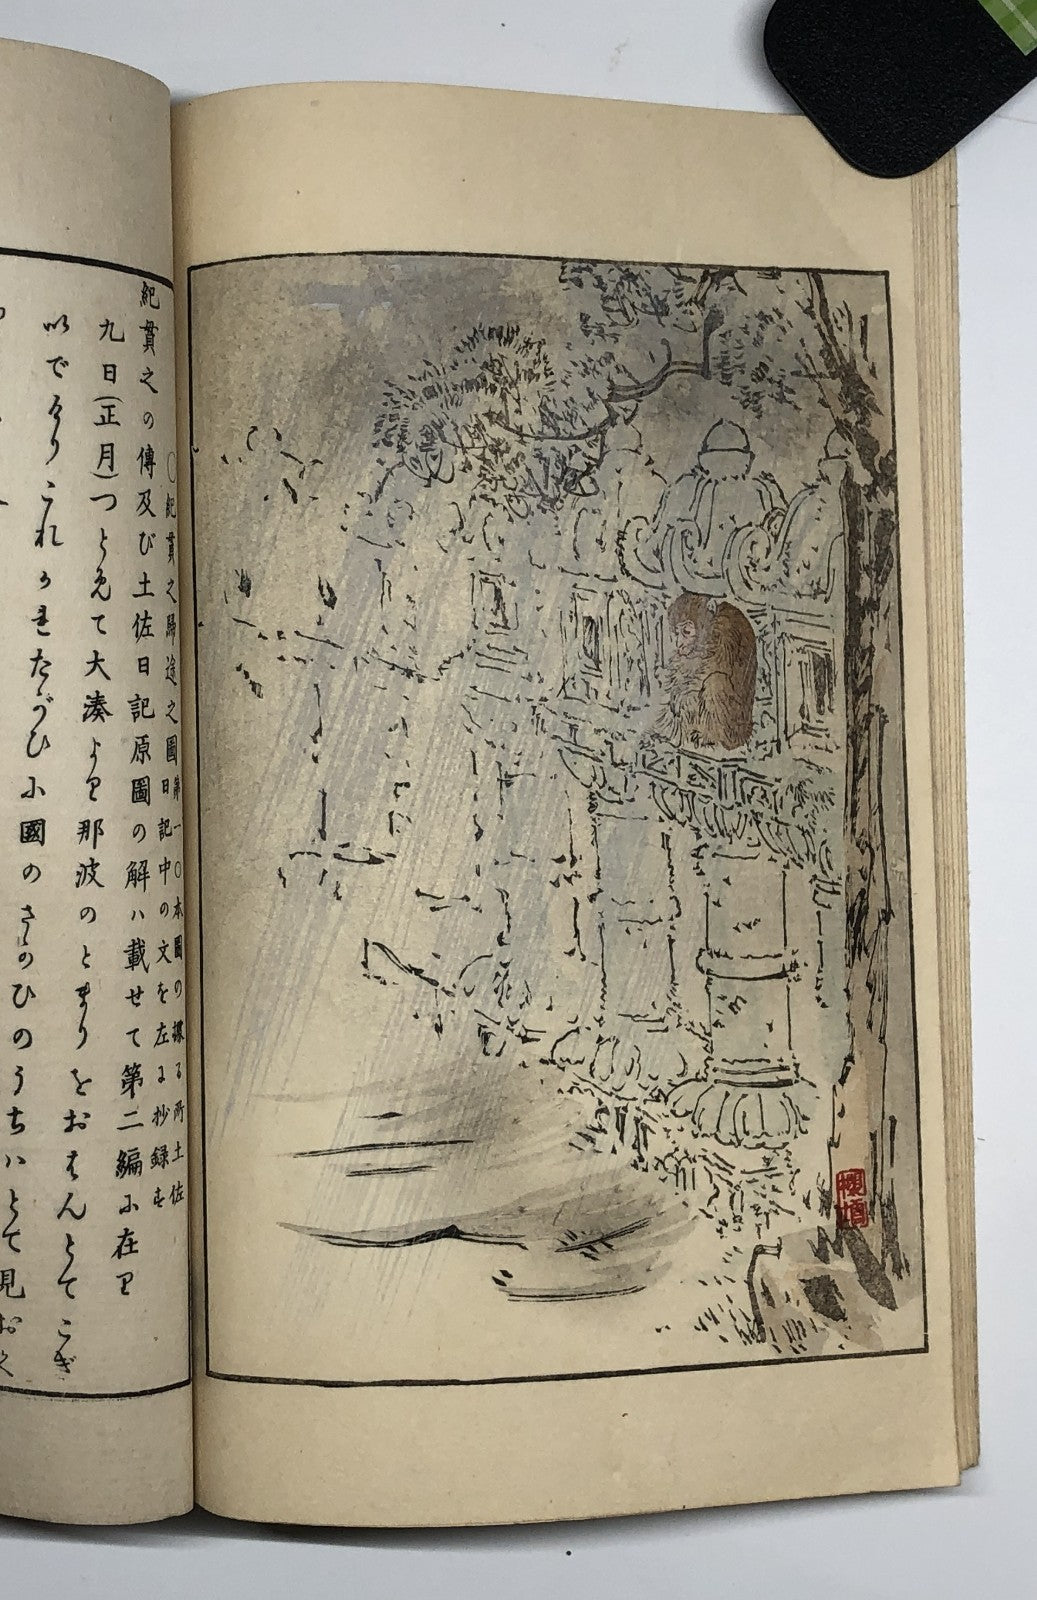 紀貫之の傳及び土佐日記原圖の解ハ載せて第二編小在り
○紀貫之歸途之圖第一○本圖の據る所土佐
日記中の文を左に抄録す
九日(正月)つとめて大湊より那波のとまりをおはんとてこぎ
以でけりこれかれたがひ小國のさかひのうちハとて見お